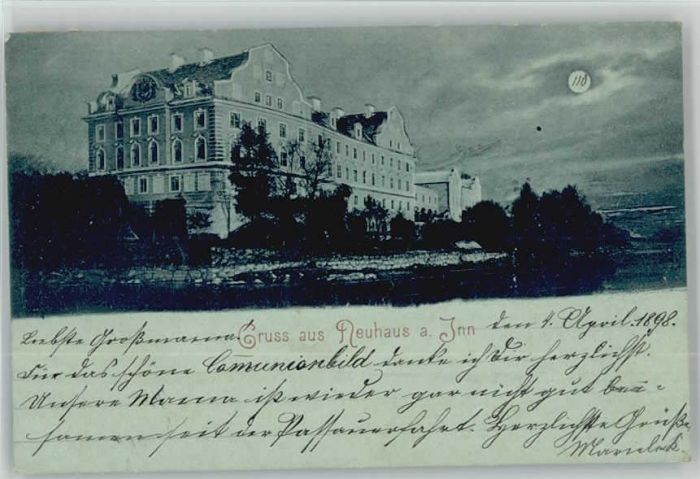 110
Gruss aus Neuhaus a. Inn
Liebste Großmama! den 4. April. 1898.
Für das schöne Communionbild danke ich Dir herzlichst.
Unsere Mama ist wieder gar nicht gut bei-
samen seit der Passauerfahrt. Herzlichste Grüße